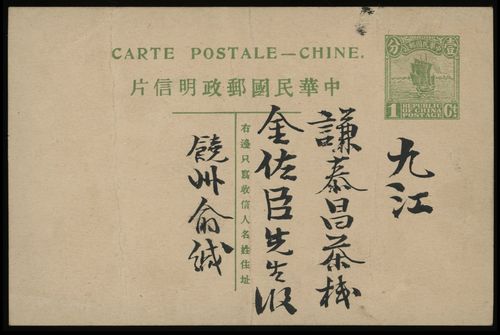 CARTE POSTALE—CHINE.
片信明政郵國民華中
分 壹
中華民國郵政
1 REPUBLIC OF CHINA POSTAGE Ct
右邊只寫收信人名姓住址
九江
謙泰昌茶棧
金佐臣先生收
饒州俞緘